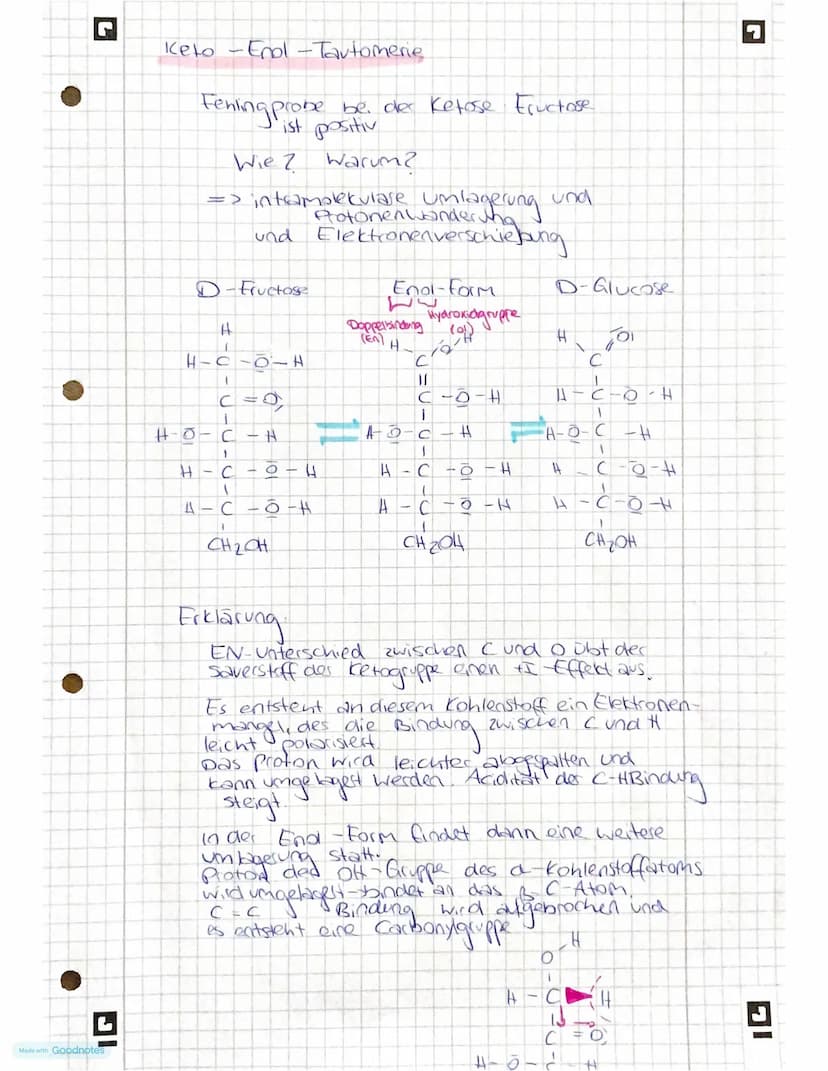 Keto - Enol - Tautomerie
Fehlingprobe bei der Ketose Fructose
ist positiv
Wie? Warum?
=> intramolekulare Umlagerung und
Protonenwanderung
und Elektronenverschiebung
D-Fructose Enol-Form D-Glucose
Doppelbindung Hydroxidgruppe
(En) (ol)
H H - O H H O
H - C - O - H C C
C = O C - O - H H - C - O - H
H - O - C - H H - O - C - H H - O - C - H
H - C - O - H H - C - O - H H - C - O - H
H - C - O - H H - C - O - H H - C - O - H
CH2OH CH2OH CH2OH
Erklärung:
EN-Unterschied zwischen C und O übt der
Sauerstoff der Ketogruppe einen +I-Effekt aus.
Es entsteht an diesem Kohlenstoff ein Elektronen-
mangel, der die Bindung zwischen C und H
leicht polarisiert.
Das Proton wird leichter abgespalten und
kann umgelagert werden. Acidität der C-H Bindung
steigt.
In der Enol-Form findet dann eine weitere
Umlagerung statt.
Proton der OH-Gruppe des α-Kohlenstoffatoms
wird umgelagert → bindet an das β C-Atom.
C=C Bindung wird aufgebrochen und
es entsteht eine Carbonylgruppe
H
O
H - C H
C = O
H - O - C - H
Made with Goodnotes